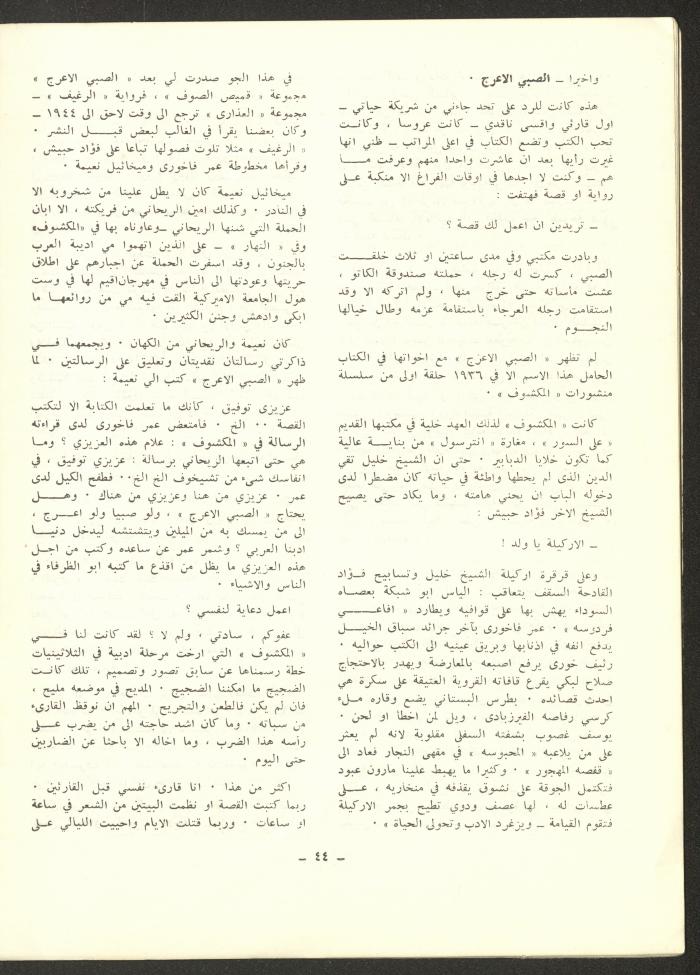 واخيرا ــ الصبي الاعرج ٠
هذه كانت للرد على تحد جاءني من شريكة حياتي ــ
اول قارئي واقسى ناقدي ــ كانت عروسا ، وكانت
تحب الكتب وتضع الكتاب في اعلى المراتب ــ ظني انها
غيرت رأيها بعد ان عاشرت واحدا منهم وعرفت مـــا
هم ــ وكنت لا اجدها في اوقات الفراغ الا منكبة على
رواية او قصة فهتفت :
ــ تريدين ان اعمل لك قصة ؟
وبادرت مكتبي وفي مدى ساعتين او ثلاث خلقـــت
الصبي ، كسرت له رجله ، حملته صندوقة الكاتو ،
عشت مأساته حتى خرج منها ، ولم اتركه الا وقد
استقامت رجله العرجاء باستقامة عزمه وطال خيالها
النجـــوم ٠
لم تظهر « الصبي الاعرج » مع اخواتها في الكتاب
الحامل هذا الاسم الا في ١٩٣٦ حلقة اولى من سلسلة
منشورات « المكشوف » ٠
كانت « المكشوف » لذلك العهد خلية في مكتبها القديم
« على السور » ، مغارة « انترسول » من بنايـــة عالية
كما تكون خلايا الدبابير ٠ حتى ان الشيخ خليل تقي
الدين الذى لم يحطها واطئة في حياته كان مضطرا لدى
دخوله الباب ان يحني هامته ، وما يكاد حتى يصيح
الشيخ الاخر فؤاد حبيش :
ــ الاركيلة يا ولد !
وعلى قرقرة اركيلة الشيخ خليل وتسابيح فـــؤاد
القادحة السقف يتعاقب : الياس ابو شبكة بعصـــاه
السوداء يهش بها على قوافيه ويطارد « افاعـــــي
فردوسه » ٠ عمر فاخورى بآخر جرائد سباق الخيـــل
يدفع انفه في اذنابها وبريق عينيه الى الكتب حواليه ٠
رئيف خورى يرفع اصبعه بالمعارضة ويهدر بالاحتجاج
صلاح لبكي يقرع قافاته القروية العتيقة على سكرة هي
احدث قصائده ٠ بطرس البستاني يضع وقاره ملء
كرسي رفاصه الفيرزبادى ، ويل لمن اخطا او لحن ٠
يوسف غصوب بشفته السفلى مقلوبة لانه لم يعثر
على من يلاعبه « المحبوسه » في مقهى النجار فعاد الى
« قفصه المهجور » ٠ وكثيرا ما يهبط علينا مارون عبود
فتكتمل الجوقة على نشوق يقذفه في منخاريه ، عـــلى
عطسات له ، لها عصف ودوي تطيح بجمر الاركيلة
فتقوم القيامة ــ ويزغرد الادب وتحولى الحياة » ٠
في هذا الجو صدرت لي بعد « الصبي الاعرج »
مجموعة « قميص الصوف » ، فرواية « الرغيف » ــ
مجموعة « العذارى » ترجع الى وقت لاحق الى ١٩٤٤ ــ
وكان بعضنا يقرأ في الغالب لبعض قبـــــل النشر ٠
« الرغيف » مثلا تلوت فصولها تباعا على فؤاد حبيش ،
وقرأها مخطوطة عمر فاخورى وميخائيل نعيمة ٠
ميخائيل نعيمة كان لا يطل علينا من شخروبه الا
في النادر ٠ وكذلك امين الريحاني من فريكته ، الا ابان
الحملة التي شنها الريحاني ــ وعاوناه بها في «المكشوف»
وفي « النهار » ــ على الذين اتهموا مي اديبة العرب
بالجنون ، وقد اسفرت الحملة عن اجبارهم على اطلاق
حريتها وعودتها الى الناس في مهرجان اقيم لها في وست
هول الجامعة الاميركية القت فيه مي من روائعها ما
ابكى وادهش وجنن الكثيرين ٠
كان نعيمة والريحاني من الكهان ٠ ويجمعهما فـــي
ذاكرتي رسالتان نقديتان وتعليق على الرسالتين ٠ لما
ظهر « الصبي الاعرج » كتب الي نعيمة :
عزيزى توفيق ، كانك ما تعلمت الكتابة الا لتكتب
القصة ٠٠ الخ ٠ فامتعض عمر فاخورى لدى قراءته
الرسالة في « المكشوف » : علام هذه العزيزي ؟ ومـا
هي حتى اتبعها الريحاني برسالة : عزيزي توفيق ، في
انفاسك شىء من تشيخوف الخ الخ٠٠ فطفح الكيل لدى
عمر ٠ عزيزي من هنا وعزيزي من هناك ٠ وهـــل
يحتاج « الصبي الاعرج » ، ولو صبيا ولو اعـــرج ،
الى من يمسك به من الميلين ويتشتشه ليدخل دنيـــا
ادبنا العربي ؟ وشمر عمر عن ساعده وكتب من اجـل
هذه العزيزي ما يظل من اقذع ما كتبه ابو الظرفاء في
الناس والاشياء ٠
اعمل دعاية لنفسي ؟
عفوكم ، سادتي ، ولم لا ؟ لقد كانت لنا فـــــي
« المكشوف » التي ارخت مرحلة ادبية في الثلاثينيات
خطة رسمناها عن سابق تصور وتصميم ، تلك كانـت
الضجيج ما امكننا الضجيج ٠ المديح في موضعه مليح ،
فان لم يكن فالطعن والتجريح ٠ المهم ان نوقظ القارىء
من سباته ٠ وما كان اشد حاجته الى من يضرب عـــلى
رأسه هذا الضرب ، وما اخاله الا باحثا عن الضاربين
حتى اليوم ٠
اكثر من هذا ٠ انا قارىء نفسي قبل القارئين ٠
ربما كتبت القصة او نظمت البيتين من الشعر في ساعة
او ساعات ٠ وربما قتلت الايام واحييت الليالي عـلى
ــ ٤٤ ــ